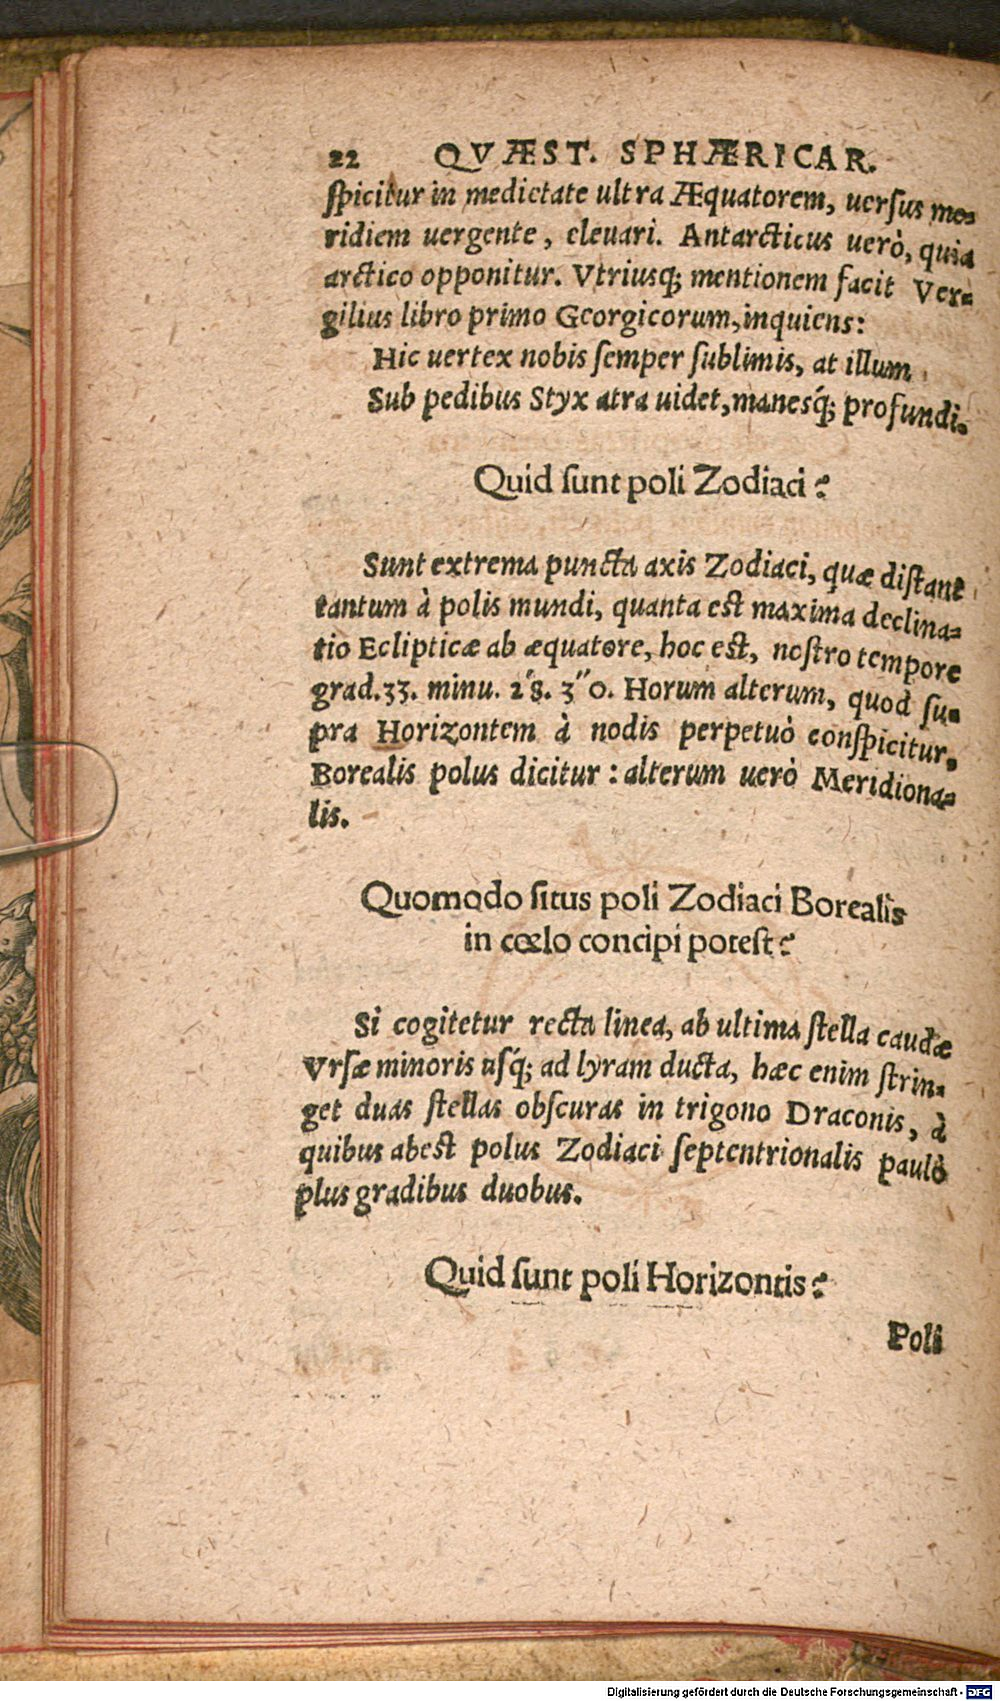 22 QVÆST. SPHÆRICAR.
ſpicitur in medietate ultra Æquatorem, uerſus me-
ridiem uergente, eleuari. Antarcticus uerò, quia
arctico opponitur. Vtriusq; mentionem facit Ver-
gilius libro primo Georgicorum, inquiens:
Hic uertex nobis ſemper ſublimis, at illum
Sub pedibus Styx atra uidet, manesq́; profundi.
Quid ſunt poli Zodiaci?
Sunt extrema puncta axis Zodiaci, quæ diſtant
tantum à polis mundi, quanta est maxima declina-
tio Eclipticæ ab æquatore, hoc est, noſtro tempore
grad. 33. minu. 2′8. 3″0. Horum alterum, quod ſu-
pra Horizontem à nodis perpetuò conſpicitur,
Borealis polus dicitur: alterum uerò Meridiona-
lis.
Quomodo ſitus poli Zodiaci Borealis
in cœlo concipi poteſt?
Si cogitetur recta linea, ab ultima ſtella caudæ
Vrſæ minoris uſq́; ad lyram ducta, hæc enim ſtrin-
get duas ſtellas obſcuras in trigono Draconis, à
quibus abest polus Zodiaci ſeptentrionalis paulò
plus gradibus duobus.
Quid ſunt poli Horizontis?
Poli
Digitalisierung gefördert durch die Deutsche Forschungsgemeinschaft - DFG